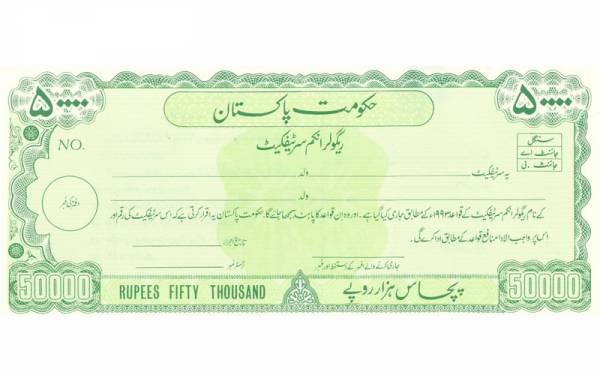 ۵۰۰۰۰ ۵۰۰۰۰
حکومت پاکستان
ریگولر انکم سرٹیفکیٹ
NO.
سنگل
جائنٹ اے
جائنٹ بی
یہ سرٹیفکیٹ ولد
ولد
دفتر کی مہر
کے نام ریگولر انکم سرٹیفکیٹ کے قواعد ۱۹۹۳ء کے مطابق جاری کیا گیا ہے۔ اور وہ ان قواعد کا پابند سمجھا جائے گا۔ حکومت پاکستان یہ اقرار کرتی ہے کہ اس سرٹیفکیٹ کی رقم اور
اس پر واجب الادا منافع قواعد کے مطابق ادا کرے گی۔
تاریخ اجراء
جاری کرنے والے افسر کے دستخط اور مہر
نمبر
50000 RUPEES FIFTY THOUSAND پچاس ہزار روپے 50000